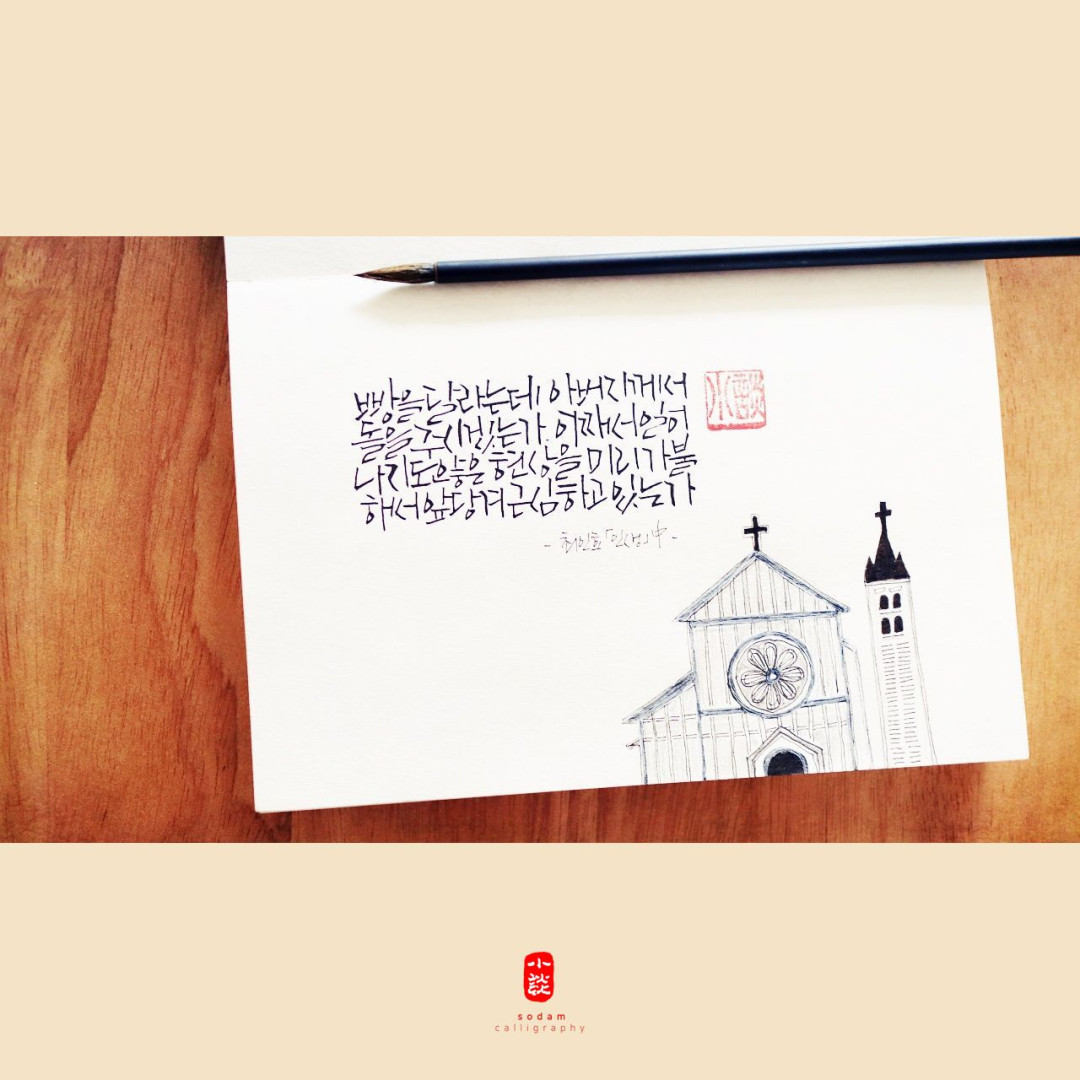 빵을 달라는데 아버지께서
돌을 주시겠는가. 어째서 일어
나지도 않은 현상을 미리 가불
해서 앞당겨 근심하고 있는가
- 최인호 「인생」 中 -
小談
sodam
calligraphy